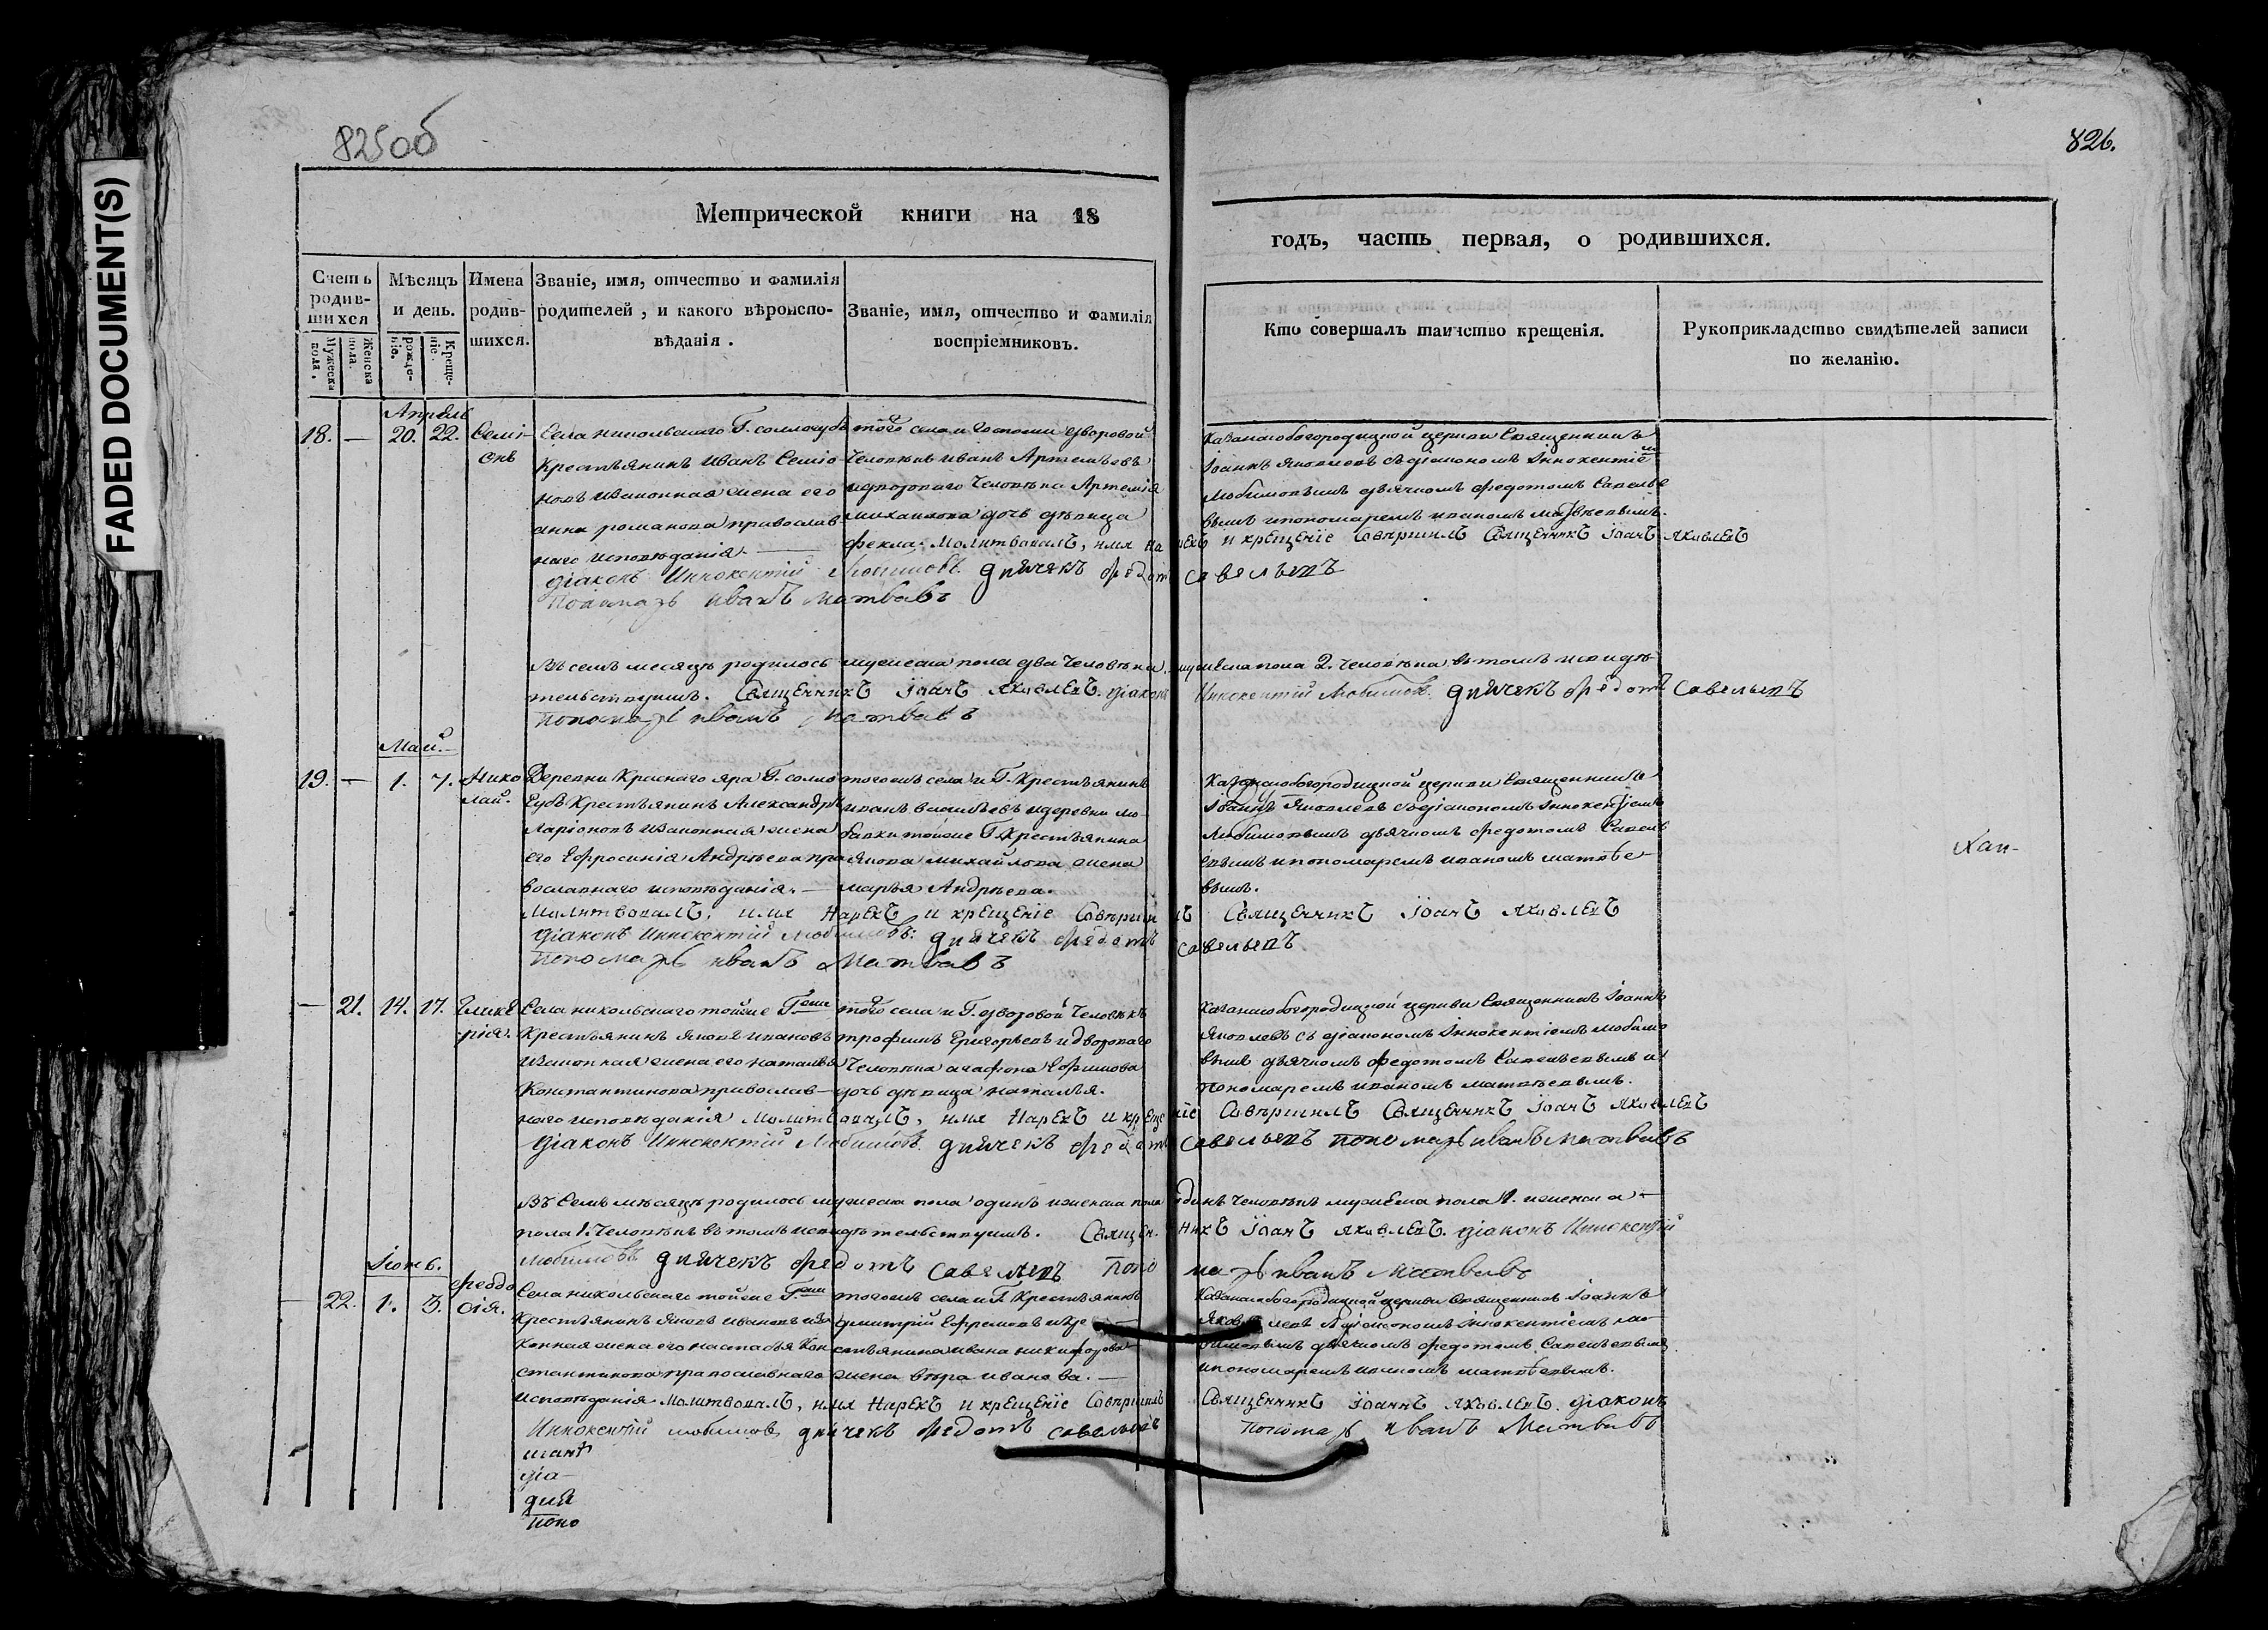 FADED DOCUMENT(S)
825об
826.
Метрической книги на 18
годъ, часть первая, о родившихся.
Счетъ родив-шихся
Мужеска пола.
Женска пола.
Мѣсяцъ и день.
рожде-ніе.
Креще-ніе.
Имена родив-шихся.
Званіе, имя, отчество и фамилія родителей, и какого вѣроиспо-вѣданія.
Званіе, имя, отчество и фамилія воспріемниковъ.
Кто совершалъ таинство крещенія.
Рукоприкладство свидѣтелей записи по желанію.
Апрѣль
18. — 20. 22. Семі-онъ
Села никольскаго Г. соллогуба
Крестьянинъ Иванъ Семіо-
новъ изаконная жена его
анна романова православ
наго исповѣданія. —
того села и Госпожи дворовой
Человѣкъ иванъ Артемьевъ
идвороваго Человѣка Артемія
михаилова дочь дѣвица
фекла.
Казанскобогородицкой церкви Священникъ
Іоаннъ Яковлевъ съ діакономъ Іннокентіемъ
Любимовымъ дьячкомъ федотомъ Савелье
вымъ ипономаремъ иваномъ матвѣевымъ.
Молитвовалъ, имя нарекъ и крещеніе Совершилъ Священникъ Іоанъ Яковлевъ
діаконъ Иннокентій Любимовъ. дьячекъ федотъ савельевъ
Пономарь иванъ матвевъ
Въ семъ месяцѣ родилось мужеска пола два Человѣка, мужеска пола 2. Человѣка въ томъ исвидѣ-
тельствуимъ. Священникъ Іоанъ Яковлевъ. діаконъ Иннокентій Любимовъ. дьячекъ федотъ Савельевъ
пономарь иванъ матвевъ
Май. —
19. — 1. 7. Нико лай.
Деревни Краснаго яра Г. солло
губъ Крестьянинъ Александръ
Ларіоновъ изаконная жена
его Ефросинія Андрѣева пра
вославнаго исповѣданія. —
тогожъ села и Г. Крестьянинъ
иванъ васильевъ идеревни лю-
бавки тойже Г. Крестьянина
якова михайлова жена
марья Андрѣева.
Казанскобогородицкой церкви Священникъ
Іоаннъ Яковлевъ съ діакономъ Іннокентіемъ
Любимовымъ дьячкомъ федотомъ Савель
евымъ ипономаремъ иваномъ матвѣе-
вымъ.
Хап-
Молитвовалъ, имя Нарекъ и крещеніе Совершилъ Священникъ Іоанъ Яковлевъ
діаконъ Иннокентій Любимовъ: дьячекъ федотъ савельевъ
Пономарь иванъ Матвевъ
— 21. 14. 17. Глике рія.
Села никольскаго тойже Гжи
Крестьянинъ Яковъ ивановъ
изаконная жена его наталья
Константинова православ-
наго исповѣданія
того села и Г. дворовой Человѣкъ
трофимъ Григорьевъ идвороваго
Человѣка агафона Ефимова
дочь дѣвица наталья.
Казанскобогородицкой церкви Священникъ Іоаннъ
Яковлевъ съ діакономъ Іннокентіемъ любимо
вымъ дьячкомъ федотомъ Савельевымъ и
пономаремъ иваномъ матвѣевымъ.
Молитвовалъ, имя Нарекъ и крещеніе Совершилъ Священникъ Іоанъ Яковлевъ
діаконъ Иннокентій Любимовъ. дьячекъ федотъ савельевъ пономарь иванъ матвевъ
Въ Семъ мѣсяцѣ родилось мужеска пола одинъ иженска пола одинъ Человѣкъ мужеска пола 1. иженска —
пола 1. Человѣкъ въ томъ исвидѣтельствуимъ. Священникъ Іоанъ Яковлевъ. діаконъ Иннокентій
любимовъ дьячекъ федотъ савельевъ пономарь иванъ матвевъ
Іюнь.
— 22. 1. 3. феодо сія.
Села никольскаго тойже Гжи
Крестьянинъ Яковъ ивановъ иза
конная жена его настасья Кон
стантинова православнаго
исповѣданія
тогожъ села и Г. Крестьянинъ
димитрій Ефремовъ икре
стьянина ивана никифорова
жена вѣра иванова. —
Казанскобогородицкой церкви Священникъ Іоаннъ
Яковлевъ съ діакономъ Іннокентіемъ лю-
бимовымъ дьячкомъ федотомъ Савельевымъ
ипономаремъ иваномъ матвѣевымъ.
Молитвовалъ, имя Нарекъ и крещеніе Совершилъ Священникъ Іоаннъ Яковлевъ. діаконъ
Иннокентій любимовъ дьячекъ федотъ савельевъ пономарь иванъ Матвевъ
діа-
дья
поно